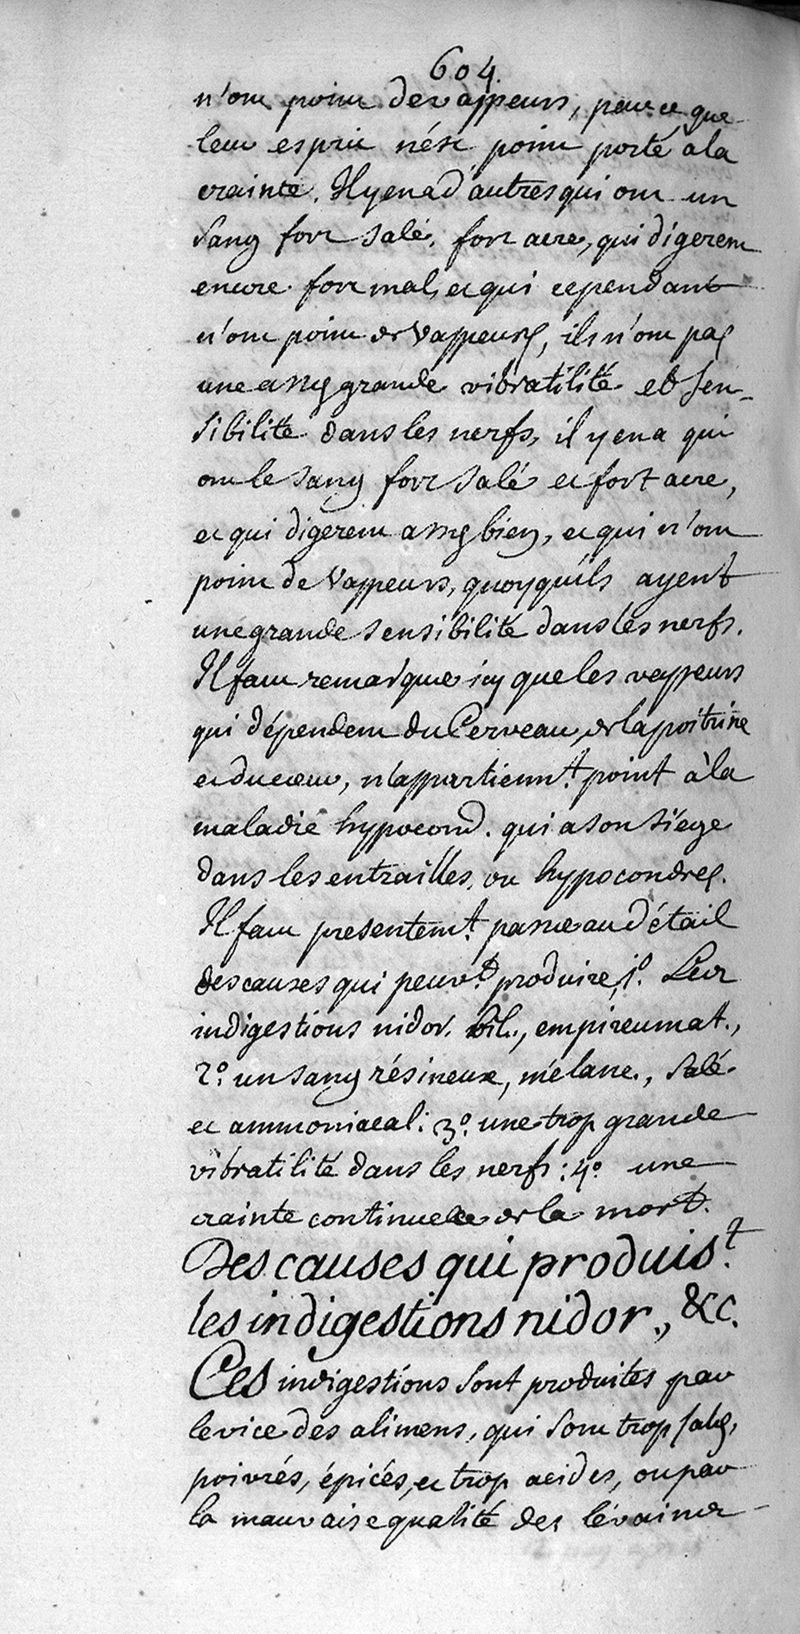 604.
n'ont point de vappeurs, parce que
leur esprit n'est point porté a la
crainte. Il y en a d'autres qui ont un
sang fort salé, fort acre, qui digerent
encore fort mal, et qui cependant
n'ont point de vappeurs, ils n'ont pas
une assez grande vibratilité et sen-
sibilité dans les nerfs, il y en a qui
ont le sang fort salé et fort acre,
et qui digerent assez bien, et qui n'ont
point de vappeurs, quoyqu'ils ayent
une grande sensibilité dans les nerfs.
Il faut remarquer icy que les vappeurs
qui dépendent du Cerveau, de la poitrine
et du cœur, n'appartienn.t point à la
maladie hyppocond. qui a son siége
dans les entrailles, ou hyppocondres.
Il faut presentem.t passer au détail
des causes qui peuv.t produire, 1.o Leur
indigestions nidor. bil., empireumat.,
2.o un sang résineux, mélanc., salé
et ammoniacal: 3.o une trop grande
vibratilité dans les nerfs: 4.o une
crainte continuelle de la mort.
Des causes qui produis.t
les indigestions nidor., &c.
Ces indigestions sont produites par
le vice des alimens, qui sont trop salés,
poivrés, épicés, et trop acides, ou par
la mauvaise qualité des lévains